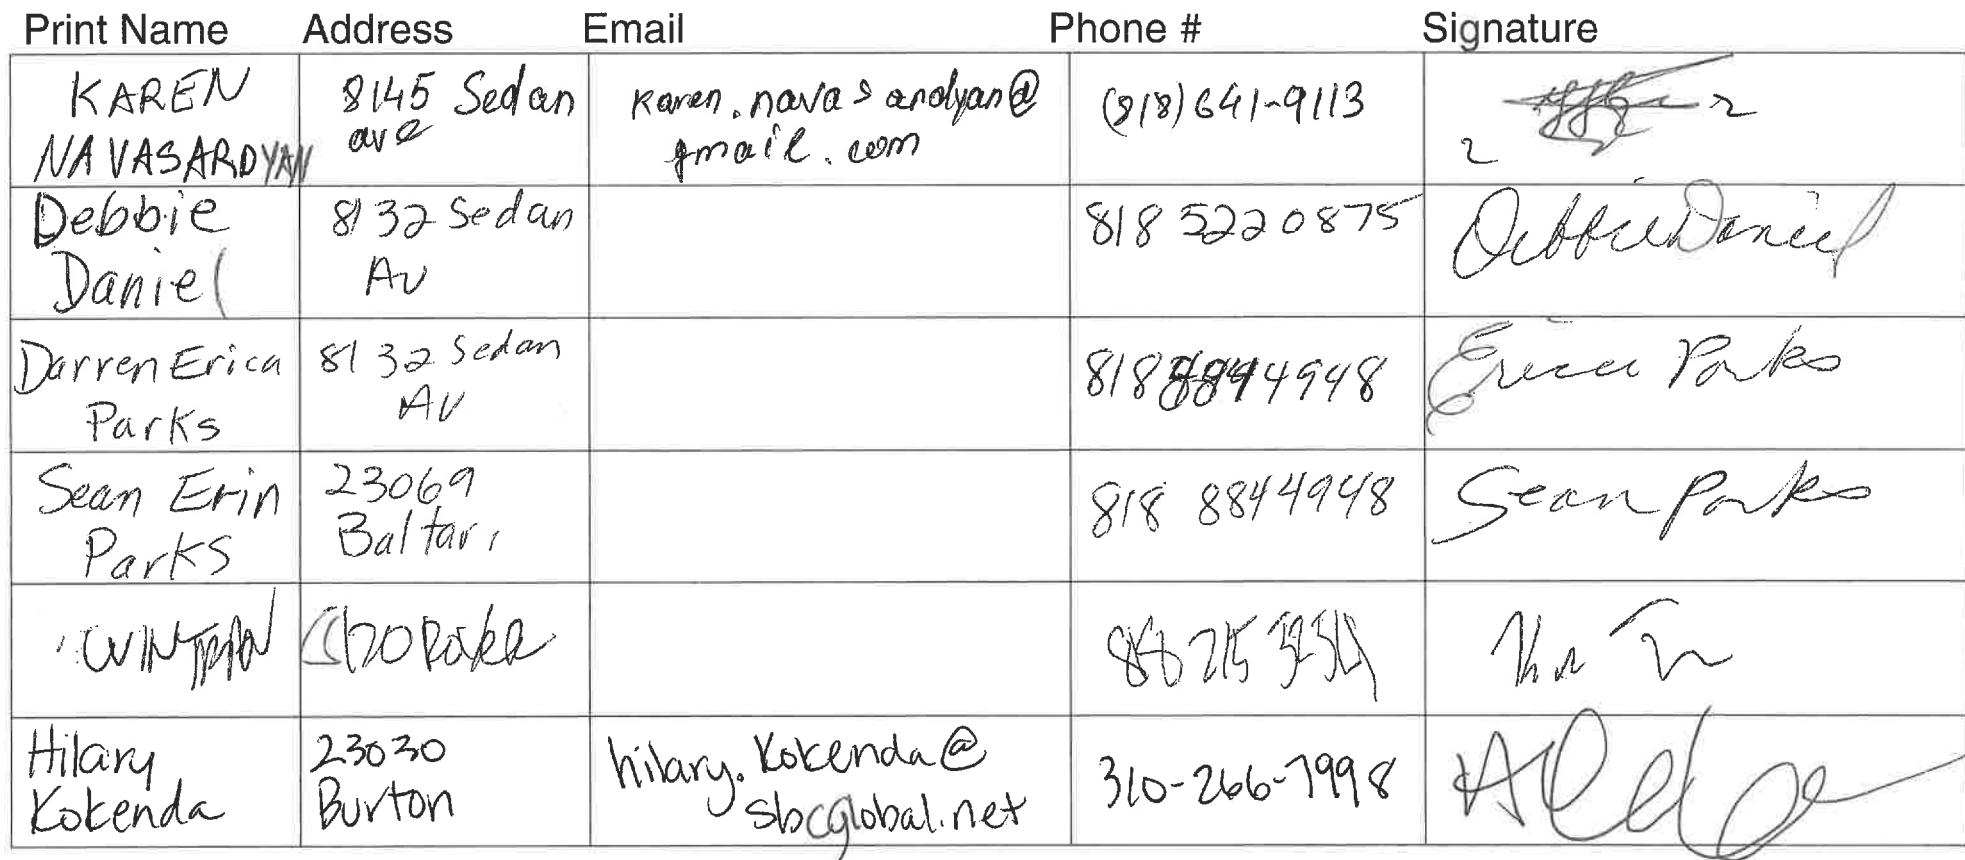 Print Name Address Email Phone # Signature
KAREN NAVASARDYAN 8145 Sedan ave karen.navasardyan@gmail.com (818)641-9113
Debbie Daniel 8132 Sedan Av 818 5220875 Debbie Daniel
Darren Erica Parks 8132 Sedan Av 818 8844948 Erica Parks
Sean Erin Parks 23069 Baltar, 818 8844948 Sean Parks
Hilary Kokenda 23030 Burton hilary.kokenda@sbcglobal.net 310-266-7998